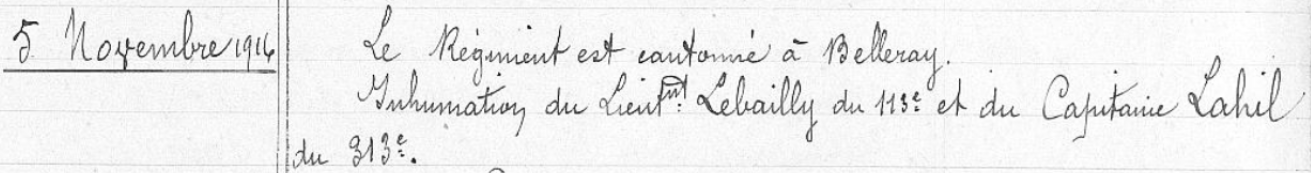 5 Novembre 1916 Le Régiment est cantonné à Belleray.
Inhumation du Lieutnt Lebailly du 113e et du Capitaine Lahil
du 313e.